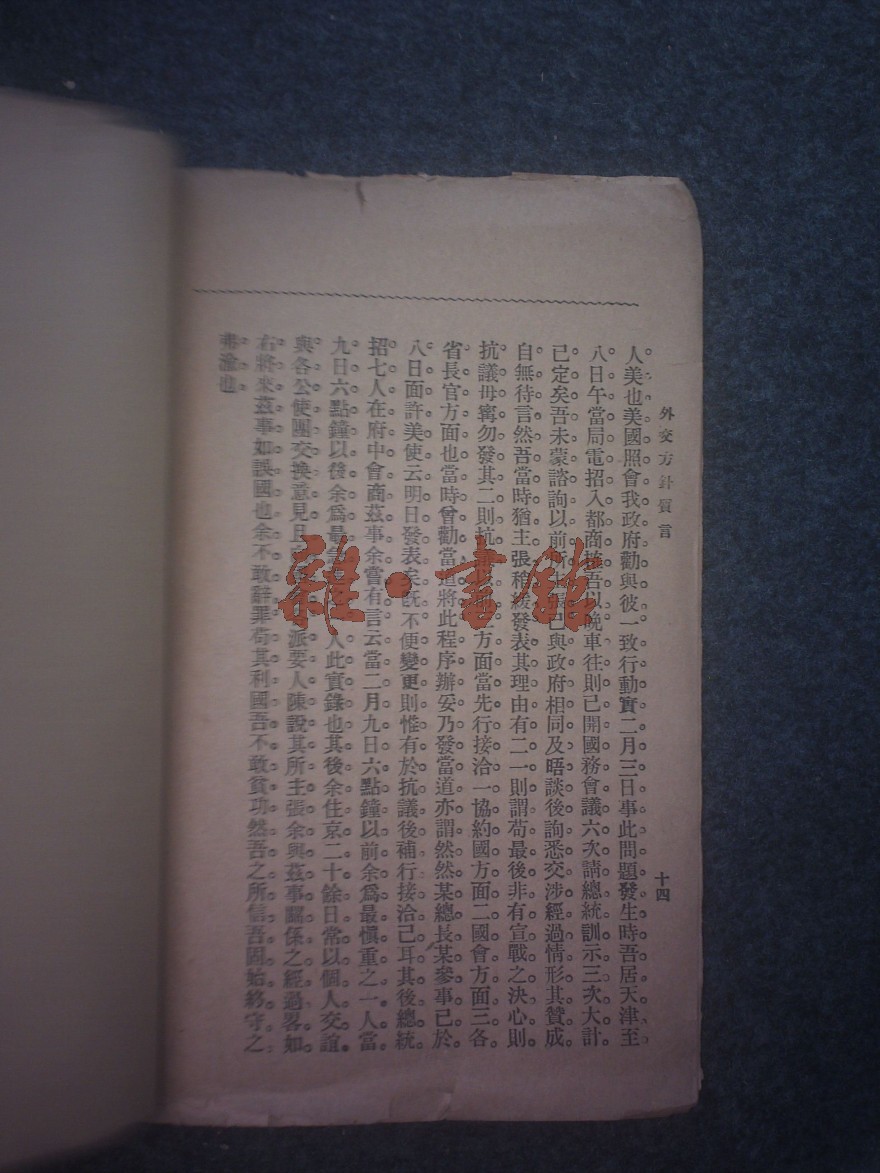 外交方針質言
十四
人美也美國照會我政府勸與彼一致行動實二月三日事此問題發生時吾居天津至
八日午當局電招入都商榷吾以晚車往則已開國務會議六次請總統訓示三次大計
已定矣吾未蒙諮詢以前所主張已與政府相同及晤談後詢悉交涉經過情形其贊成
自無待言然吾當時猶主張稍緩發表其理由有二一則謂苟最後非有宣戰之決心則
抗議毋寧勿發其二則抗議以前三方面當先行接洽一協約國方面二國會方面三各
省長官方面也當時曾勸當道將此程序辦妥乃發當道亦謂然然某總長某參事已於
八日面許美使云明日發表矣既不便變更則惟有於抗議後補行接洽已耳其後總統
招七人在府中會商茲事余嘗有言云當二月九日六點鐘以前余為最愼重之一人當
九日六點鐘以後余為最 人此實錄也其後余住京二十餘日常以個人交誼
與各公使團交換意見且 派要人陳說其所主張余與茲事關係之經過畧如
右將來茲事如誤國也余不敢辭罪苟其利國吾不敢貪功然吾之所信吾固始終守之
弗渝也
雜·書館